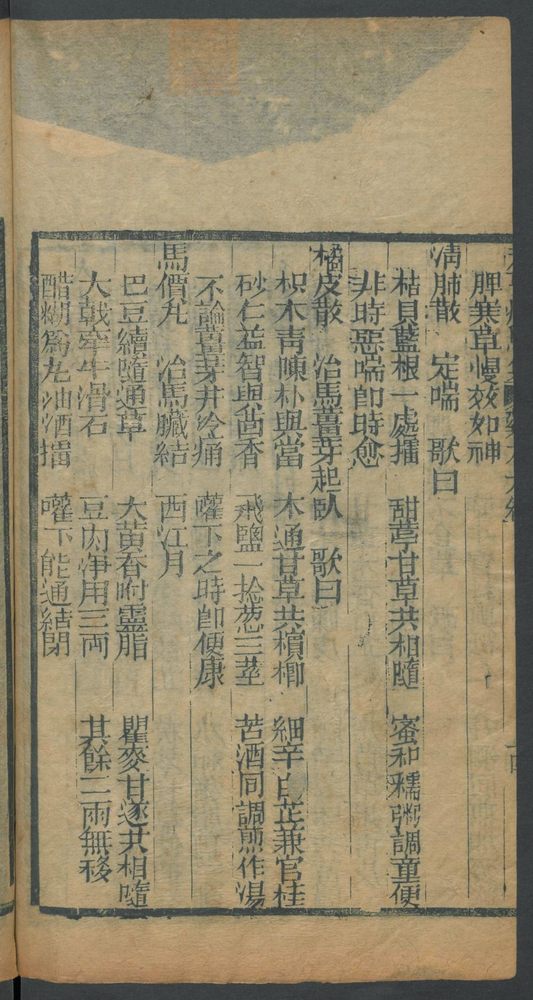 脾寒草慢效如神
淸肺散 定喘 歌曰
枯貝藍根一處擂 甜葶甘草共相隨 蜜和糯粥調童便
非時惡喘卽時愈
橘皮散 治馬薑芽起臥 歌曰
枳木靑陳朴與當 木通甘草共檳榔 細辛白芷兼官桂
砂仁益智與茴香 飛鹽一捻葱三莖 苦酒同調煎作湯
不論薑芽幷冷痛 嚾下之時卽便康
馬價丸 治馬臟結 西江月
巴豆續隨通草 大黃香附靈脂 瞿麥甘遂共相隨
大戟牽牛滑石 豆肉淨用三兩 其餘二兩無移
醋糊爲丸油酒擂 嚾下能通結閉